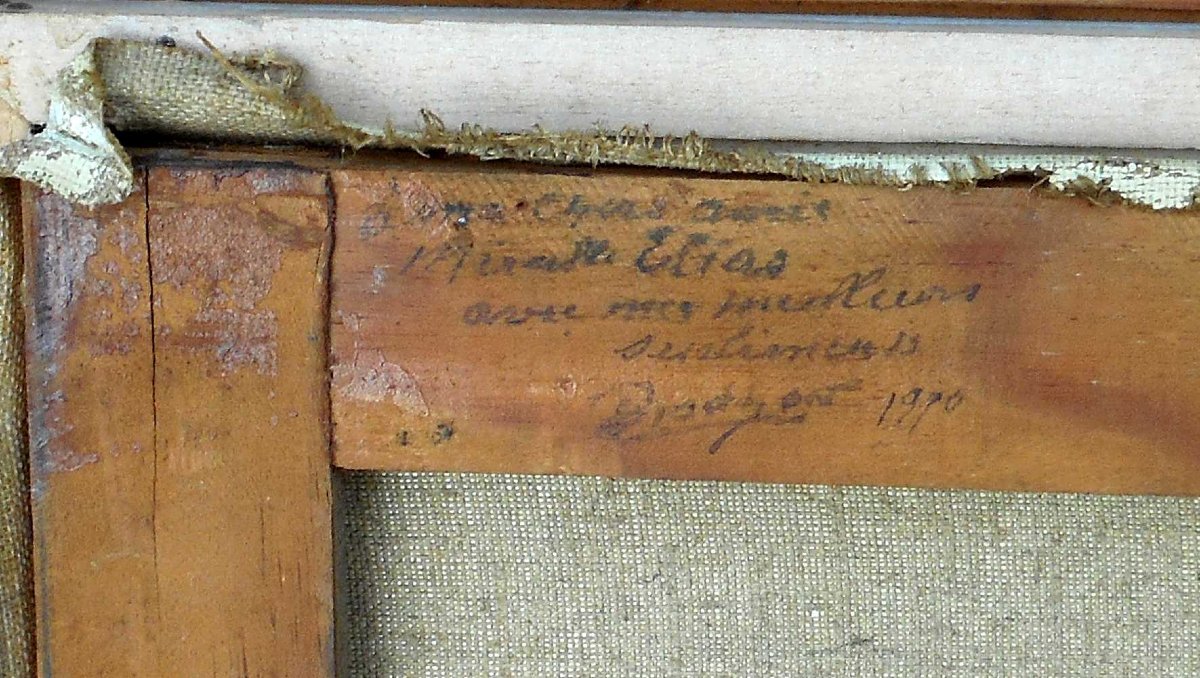 à ma chers amis
Elias
avec mes meilleurs
sentiments
1970